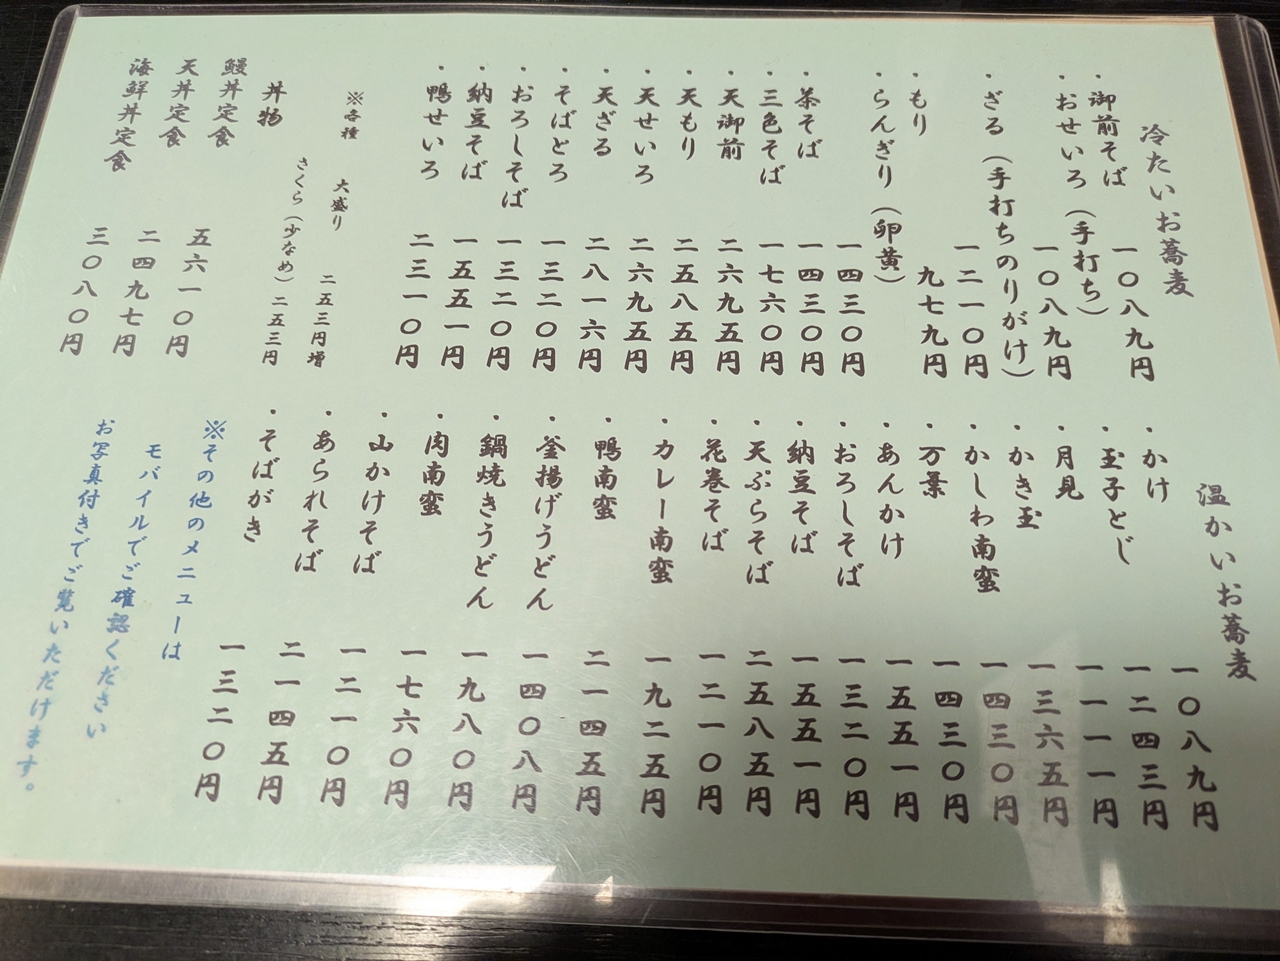 冷たいお蕎麦
・御前そば 一〇八九円
・おせいろ（手打ち） 一〇八九円
・ざる（手打ちのりがけ） 一二一〇円
・もり 九七九円
・らんぎり（卵黄） 一四三〇円
・茶そば 一四三〇円
・三色そば 一七六〇円
・天御前 二六九五円
・天もり 二五八五円
・天せいろ 二六九五円
・天ざる 二八一六円
・そばとろ 一三二〇円
・おろしそば 一三二〇円
・納豆そば 一五五一円
・鴨せいろ 二三一〇円
※各種 大盛り 二五三円増
さくら（少なめ）二五三円
丼物
鰻丼定食 五六一〇円
天丼定食 二四九七円
海鮮丼定食 三〇八〇円
温かいお蕎麦
・かけ 一〇八九円
・玉子とじ 一二四三円
・月見 一一一一円
・かき玉 一三六五円
・かしわ南蛮 一四三〇円
・万葉 一四三〇円
・あんかけ 一五五一円
・おろしそば 一三二〇円
・納豆そば 一五五一円
・天ぷらそば 二五八五円
・花巻そば 一二一〇円
・カレー南蛮 一九二五円
・鴨南蛮 二一四五円
・釜揚げうどん 一四〇八円
・鍋焼きうどん 一九八〇円
・肉南蛮 一七六〇円
・山かけそば 一二一〇円
・あられそば 二一四五円
・そばがき 一三二〇円
※その他のメニューは
モバイルでご確認ください
お写真付きでご覧いただけます。